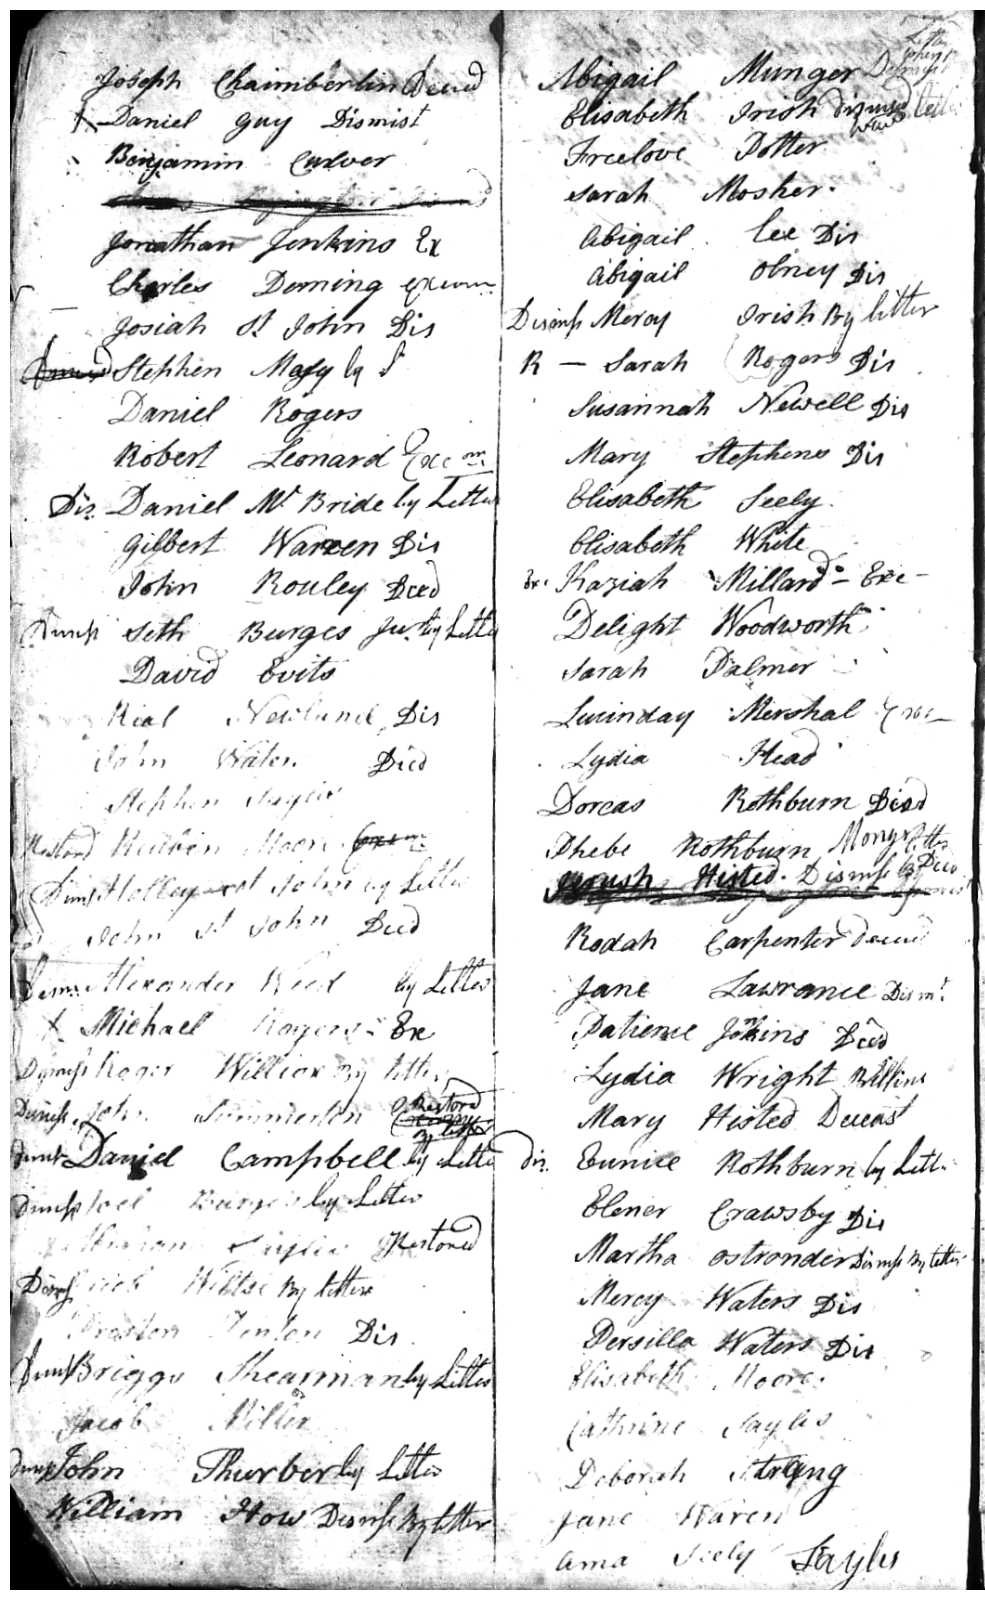 Joseph Chaimberlin Deced
Daniel Guy Dismist
Benjamin Culver
Jonathan Jenkins Ex
Charles Deming excom
Josiah St John Dis
Stephen Mosy by
Daniel Rogers
Robert Leonard Excm
Dis Daniel Mc Bride by Letter
Gilbert Warren Dis
John Rouley Deed
Dismiss Seth Burges Jur by Letter
David Evits
Rial Newland Dis
John Waters Died
Stephen Sayles
Restord Reuben Moon
Dimss Holley St John by Letter
John St John Deed
Dismss Alexander Reed by Letter
Michael Rogers Ex
Dismiss Roger Willcox By letter
Dimiss John Summerton Restored By letter
Dimss Daniel Campbell by Letter
Dimiss Joel Burges by Letter
Sayles Restored
Dimss Wiltse By letter
Preston Fenton Dis
Dimss Briggs Shearman by Letter
Jacob Miller
Dimss John Thurber by Letter
William How Dismiss By letter
Abigail Munger Dismist
Elisabeth Irish Dismised
Freelove Potter
Sarah Mosher
Abigail Lee Dis
Abigail Olney Dis
Dismiss Mercy Irish By litter
R — Sarah Rogers Dis
Susannah Newell Dis
Mary Stephens Dis
Elisabeth Seely
Elisabeth White
Exc Kaziah Millard - Exc -
Delight Woodworth
Sarah Palmer
Lucinday Mershal Exc
Lydia Head
Dorcas Rothburn Died
Phebe Rothburn
Jerush Histed Dismiss By
Rodah Carpenter Deced
Jane Lawrance Dismt
Patience Jenkins Deed
Lydia Wright
Mary Histed Deceast
dis. Eunice Rothburn by Letter
Elener Crawsby Dis
Martha Ostronder Dismiss By letter
Mercy Waters Dis
Persilla Waters Dis
Elisabeth Moore
Cathrine Sayles
Deborah Strang
Jane Waren
Ama Seely Sayles